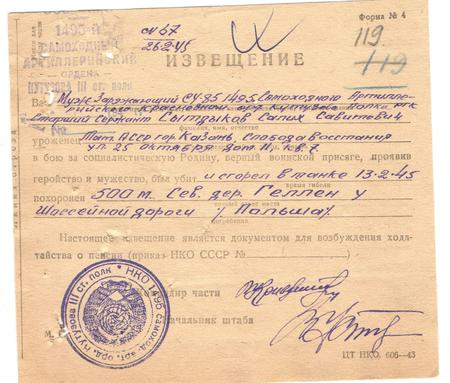 Форма № 4
1495-й
САМОХОДНЫЙ
АРТИЛЛЕРИЙСКИЙ
ОРДЕНА
КУТУЗОВА III ст. полк
№ 57
26.2.45
119
119
ИЗВЕЩЕНИЕ
Ваш Муж Заряжающий СУ-85 1495 Самоходного Артилле-
рийского Краснознам. орд Кутузова Полка РГК
Старший Сержант Сытдыков Салих Сабитович
фамилия, имя, отчество
уроженец Тат. АССР гор. Казань, Слобода Восстания
ул. 25 Октября дом 11, кв. 7.
в бою за социалистическую Родину, верный воинской присяге, проявив
геройство и мужество, был убит и сгорел в танке 13-2-45
время гибели
похоронен 500 м. Сев. дер. Геллен у
Шоссейной дороги /Польша/
Настоящее извещение является документом для возбуждения хода-
тайства о пенсии (приказ НКО СССР № )
Командир части
Начальник штаба
М.
НКО 1495 самоход. арт. орд. Кутузова III ст. полк
ЦТ НКО. 606—43